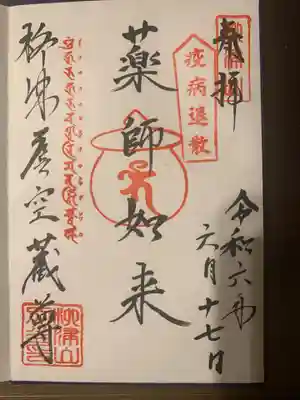 奉拝
令和六年
六月十七日
疫病退散
薬師如来
柳津虚空蔵尊